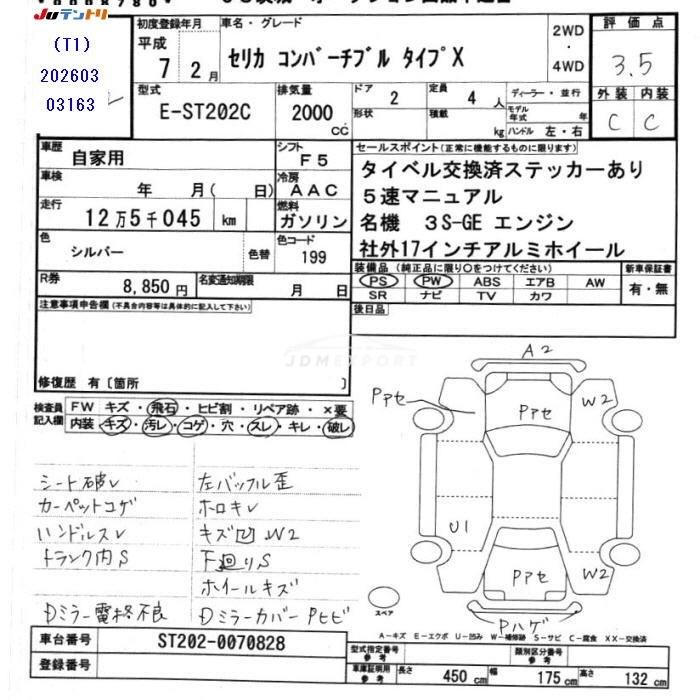 Juテントリ
(T1)
202603
03163
初度登録年月
平成
7年2月
車名・グレード
セリカ コンバーチブル タイプX
2WD
・
4WD
評価点
3.5
外装 内装
C C
型式
E-ST202C
排気量
2000
CC
ドア
2
形状
定員
4人
積載
kg
ディーラー・並行
モデル年式 年
ハンドル 左・右
車歴
自家用
シフト
F5
車検
年 月( 日)
冷房
AAC
走行
12万5千045 km
燃料
ガソリン
色
シルバー
色替
色コード
199
R券
8,850円
名変通知期限
月 日
セールスポイント(正常に機能するものに限ります)
タイベル交換済ステッカーあり
5速マニュアル
名機 3S-GE エンジン
社外17インチアルミホイール
装備品(純正品に限り○をつけてください)
PS PW ABS エアB AW
SR ナビ TV カワ
新車保証書
有・無
後日品
注意事項申告欄(不具合内容等は具体的に記入して下さい)
JDMEXPORT
修復歴 有〔箇所 〕
検査員記入欄
FW キズ・飛石・ヒビ割・リペア跡・×要
内装 キズ・汚レ・コゲ・穴・スレ・キレ・破レ
シート破レ
カーペットコゲ
ハンドルスレ
トランク内S
Dミラー電格不良
左バッフル歪
ホロキレ
キズ凹W2
下廻りS
ホイールキズ
DミラーカバーPヒビ
A2
Pアセ
Pアセ
W2
U1
Pアセ
W2
Pハゲ
スペア
A-キズ E-エクボ U-凹み W-補修跡 S-サビ C-腐食 XX-交換済
車台番号
ST202-0070828
登録番号
型式指定番号
参考
類別区分番号
参考
車庫証明用
参考
長さ 450 cm
幅 175 cm
高さ 132 cm